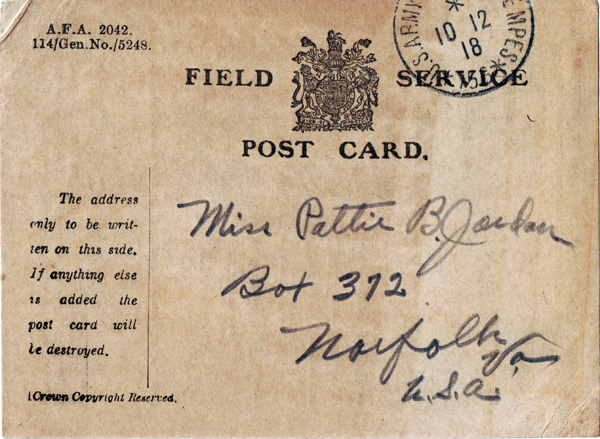 A.F.A. 2042.
114/Gen.No./5248.
U.S. ARMY
10 12
18
FIELD SERVICE
POST CARD.
The address
only to be writ-
ten on this side.
If anything else
is added the
post card will
be destroyed.
Crown Copyright Reserved.
Miss Pattie B. Jordan
Box 372
Norfolk
Va
U.S.A.